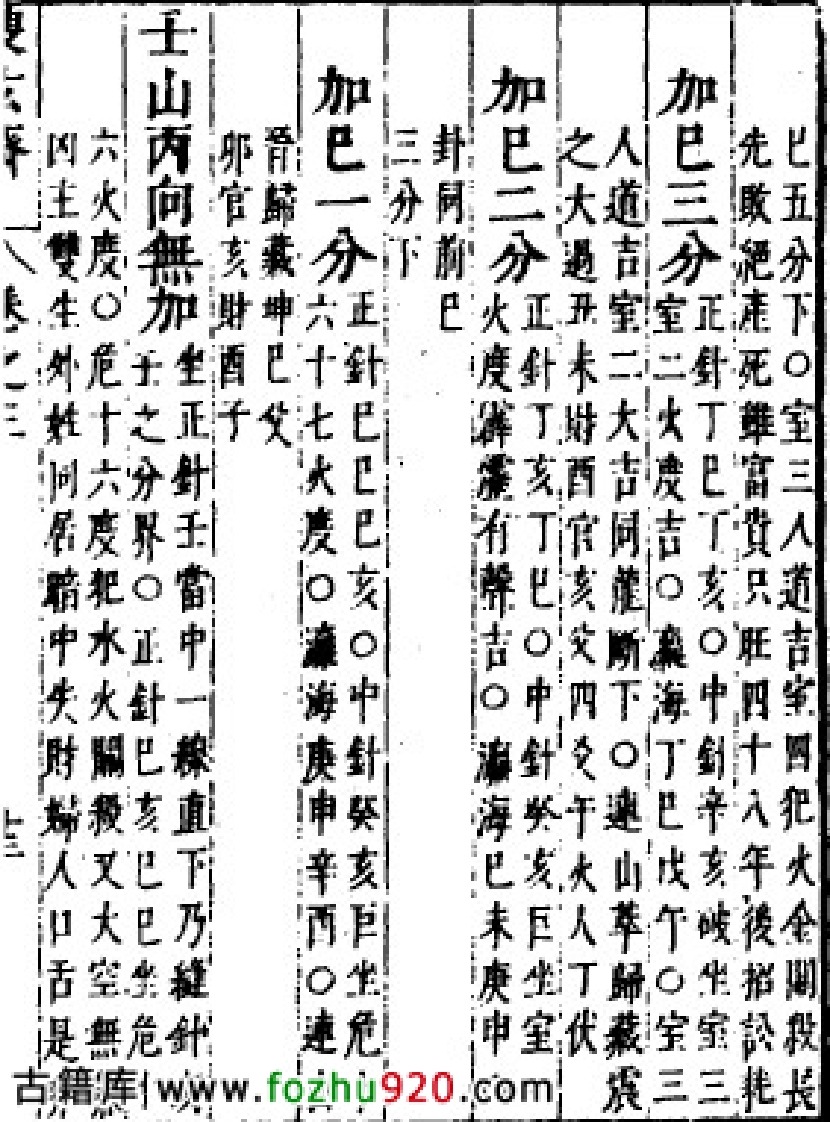 巳五分下○室三人道吉室四犯火金關殺長
先敗絕產死雖富貴只旺四十八年後招訟耗
加巳三分
正針丁巳丁亥○中針辛亥破坐室三
室二火度吉○瀛海丁巳戊午○室三
人道吉室二大吉同龍斷下○連山萃歸藏震
之大過丑未財酉官亥父四爻午火人丁伏
加巳二分
正針丁亥丁巳○中針癸亥巨坐室
火度霹靂有聲吉○瀛海巳未庚申
卦同前巳
三分下
加巳一分
正針巳巳巳亥○中針癸亥巨坐危
六十七火度○瀛海庚申辛酉○連
晉歸藏坤巳父
卯官亥財酉子
壬山丙向無加
坐正針壬當中一線直下乃縫針
壬之分界○正針巳亥巳巳坐危
六火度○危十六度犯水火關殺又大空無
凶主雙生外姓同居暗中失財婦人口舌是
古籍库 www.fozhu920.com